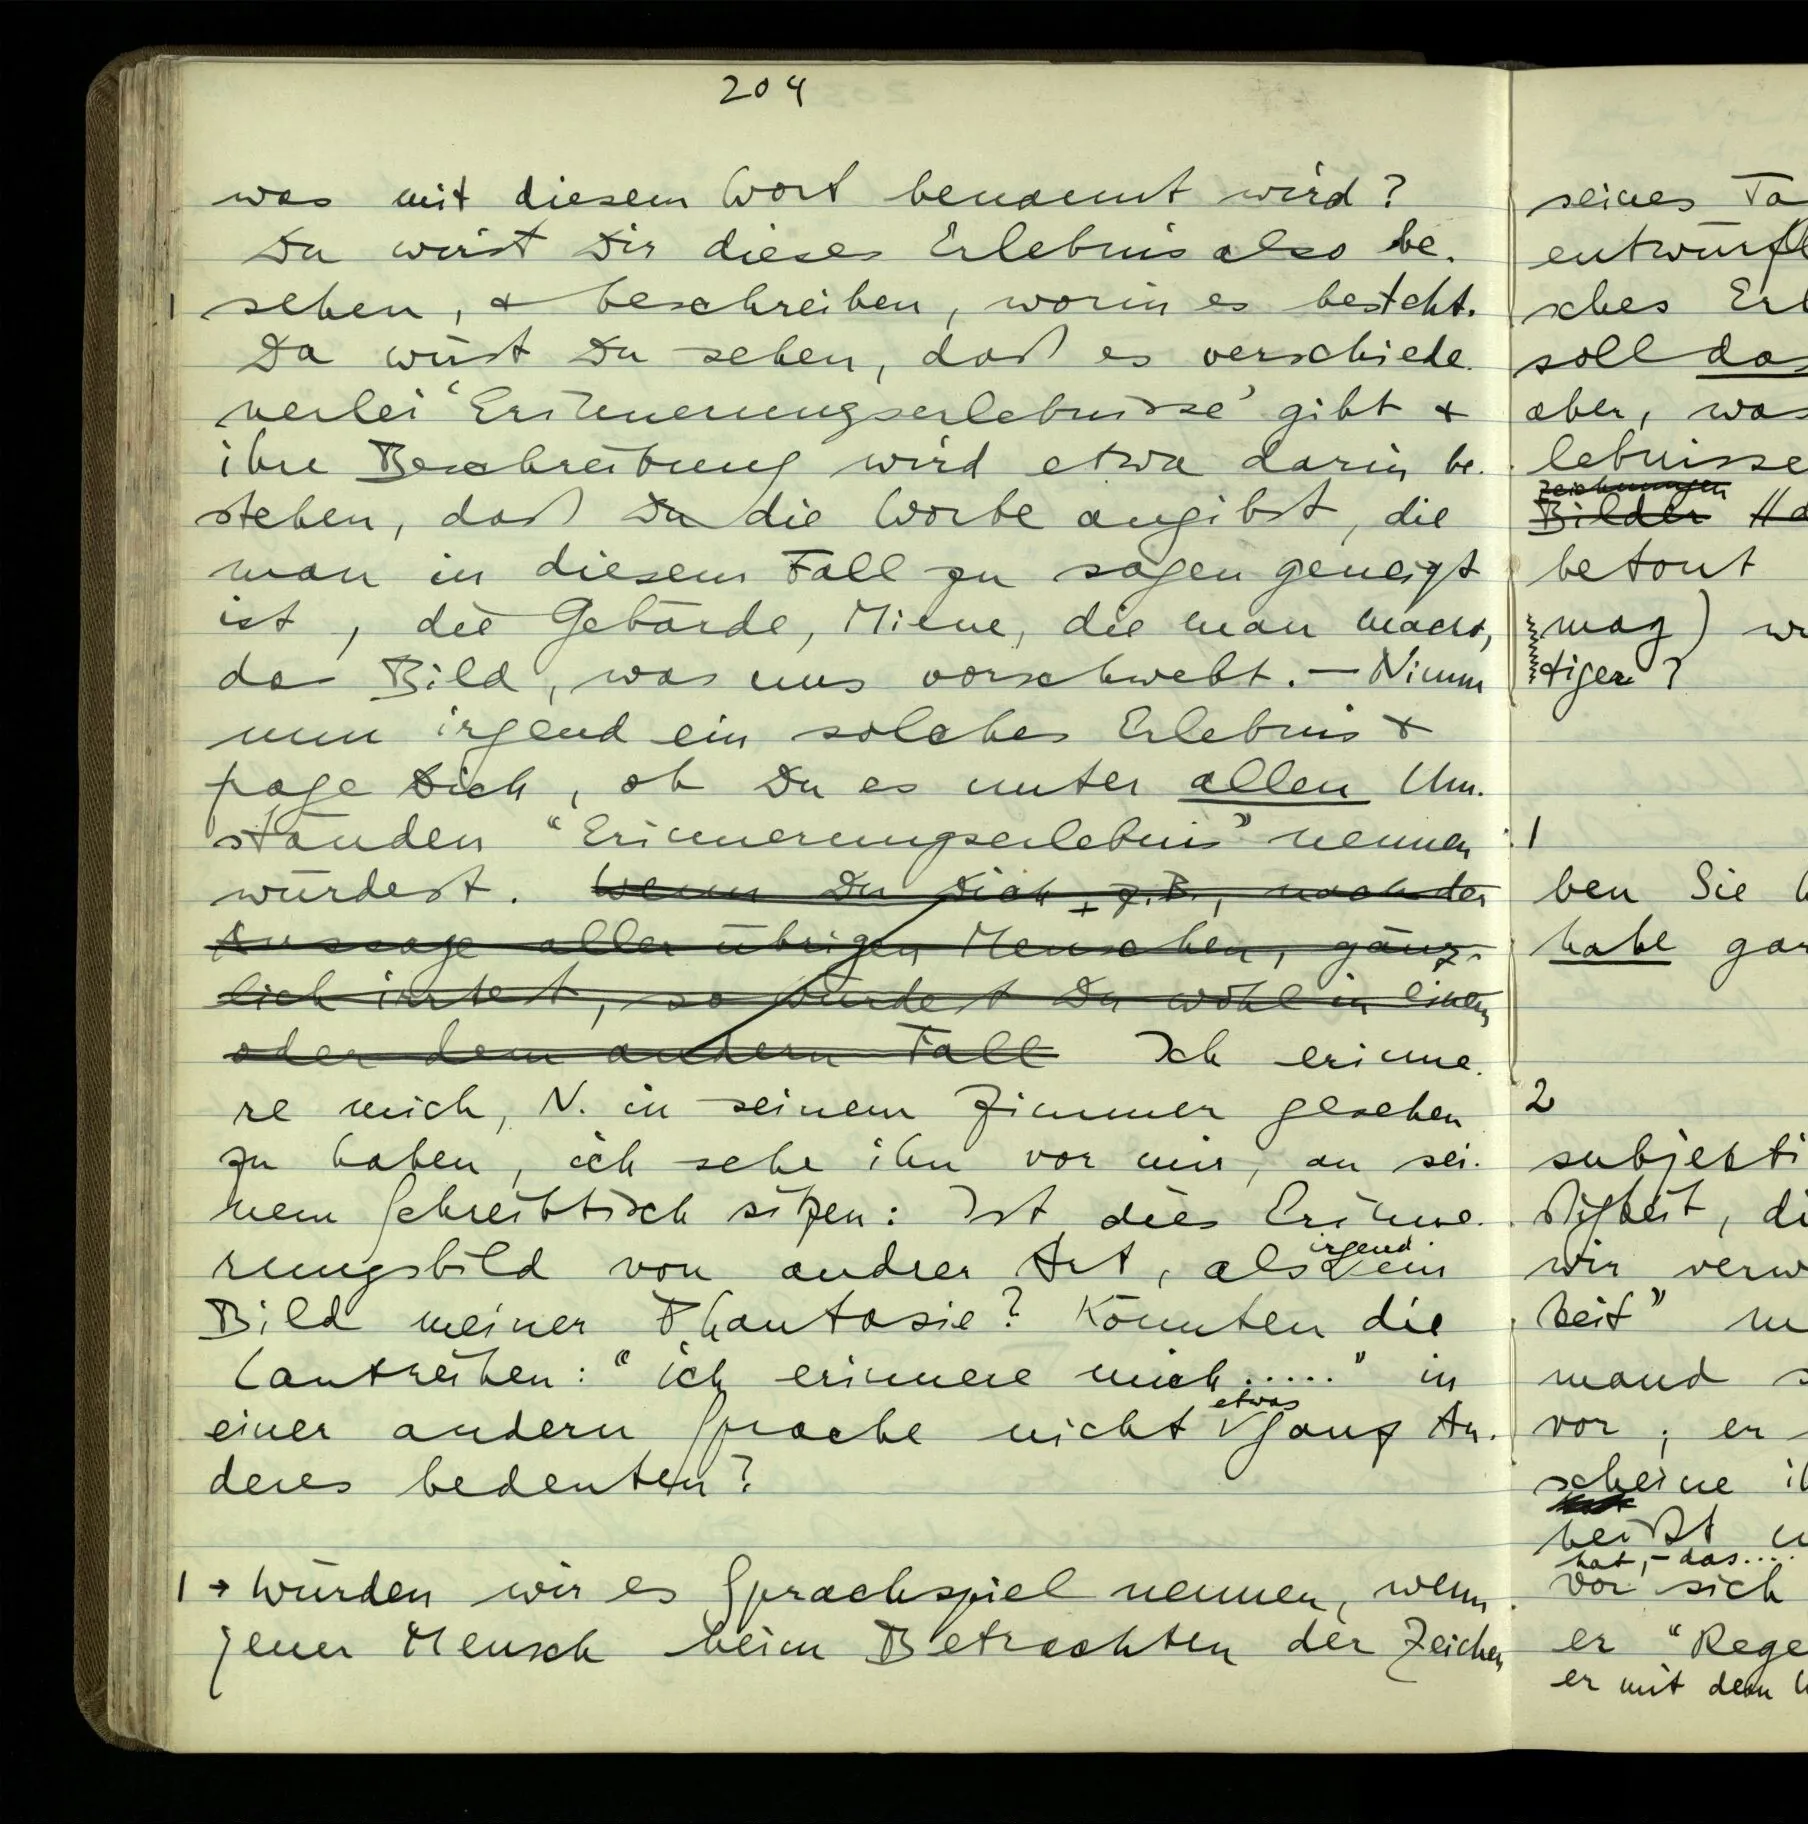 204
was mit diesem Wort benannt wird?
Du wirst Dir dieses Erlebnis also be-
1 sehen, & beschreiben, worin es besteht.
Da wirst Du sehen, daß es verschiede-
nerlei ‘Erinnerungserlebnisse’ gibt &
ihre Beschreibung wird etwa darin be-
stehen, daß Du die Worte angibst, die
man in diesem Fall zu sagen geneigt
ist, die Gebärde, Miene, die man macht,
das Bild, was uns vorschwebt. – Nimm
nun irgend ein solches Erlebnis &
frage Dich, ob Du es unter allen Um-
ständen “Erinnerungserlebnis” nennen
würdest. Wenn Du Dich, z.B., nach der
Aussage aller übrigen Menschen, gänz-
lich irrtest, so würdest Du wohl in einem
oder dem andern Fall Ich erinne-
re mich, N. in seinem Zimmer gesehen
zu haben, ich sehe ihn vor mir, an sei-
nem Schreibtisch sitzen: Ist dies Erinne-
rungsbild von andrer Art, als irgend ein
Bild meiner Phantasie? Könnten die
Lautreihen: “ich erinnere mich .....” in
einer andern Sprache nicht etwas ganz An-
deres bedeuten?
1 → Würden wir es Sprachspiel nennen, wenn
jener Mensch beim Betrachten der Zeichen
seines Ta
entwürfe
sches Erl
soll das
aber, was
lebnisse
Zeichnungen
Bilder // d
betont
mag) w
tiger?
1
ben Sie h
habe gar
2
subjekti
stigkeit, di
wir verw
keit” m
mand s
vor; er
scheine ih
heißt u
hat, – das....
vor sich
er “Rege
er mit dem W